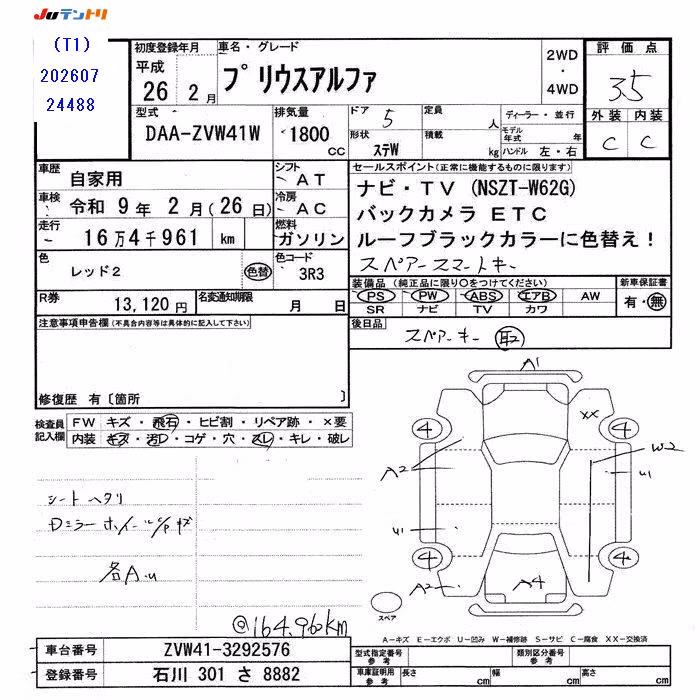 JUテントリ
(T1)
202607
24488
初度登録年月
平成
26年 2月
車名・グレード
プリウスアルファ
2WD
・
4WD
評価点
3.5
外装 内装
C C
型式
DAA-ZVW41W
排気量
1800
cc
ドア 5
定員 人
形状 ステW
積載 kg
ディーラー・並行
モデル年式 年
ハンドル 左・右
車歴 自家用
車検 令和 9年 2月(26日)
走行 16万4千961 km
シフト AT
冷房 AC
燃料 ガソリン
色 レッド2 色替
色コード 3R3
R券 13,120円
名変通知期限 月 日
セールスポイント(正常に機能するものに限ります)
ナビ・TV (NSZT-W62G)
バックカメラ ETC
ルーフブラックカラーに色替え!
スペアースマートキー
装備品(純正品に限り○をつけてください)
PS PW ABS エアB AW
SR ナビ TV カワ
新車保証書
有・無
後日品
スペアーキー 取
注意事項申告欄(不具合内容等は具体的に記入して下さい)
修復歴 有〔箇所 〕
検査員記入欄
FW キズ・飛石・ヒビ割・リペア跡・×要
内装 キズ・汚レ・コゲ・穴・スレ・キレ・破レ
シートヘタリ
Dミラー ホイールC/Pキズ
各A.u
@164,960km
A1
XX
4
4
A2
W2
U1
U1
4
4
A2
A4
スペア
A-キズ E-エクボ U-凹み W-補修跡 S-サビ C-腐食 XX-交換済
車台番号 ZVW41-3292576
登録番号 石川 301 さ 8882
型式指定番号 参考
類別区分番号 参考
車庫証明用 参考
長さ cm
幅 cm
高さ cm